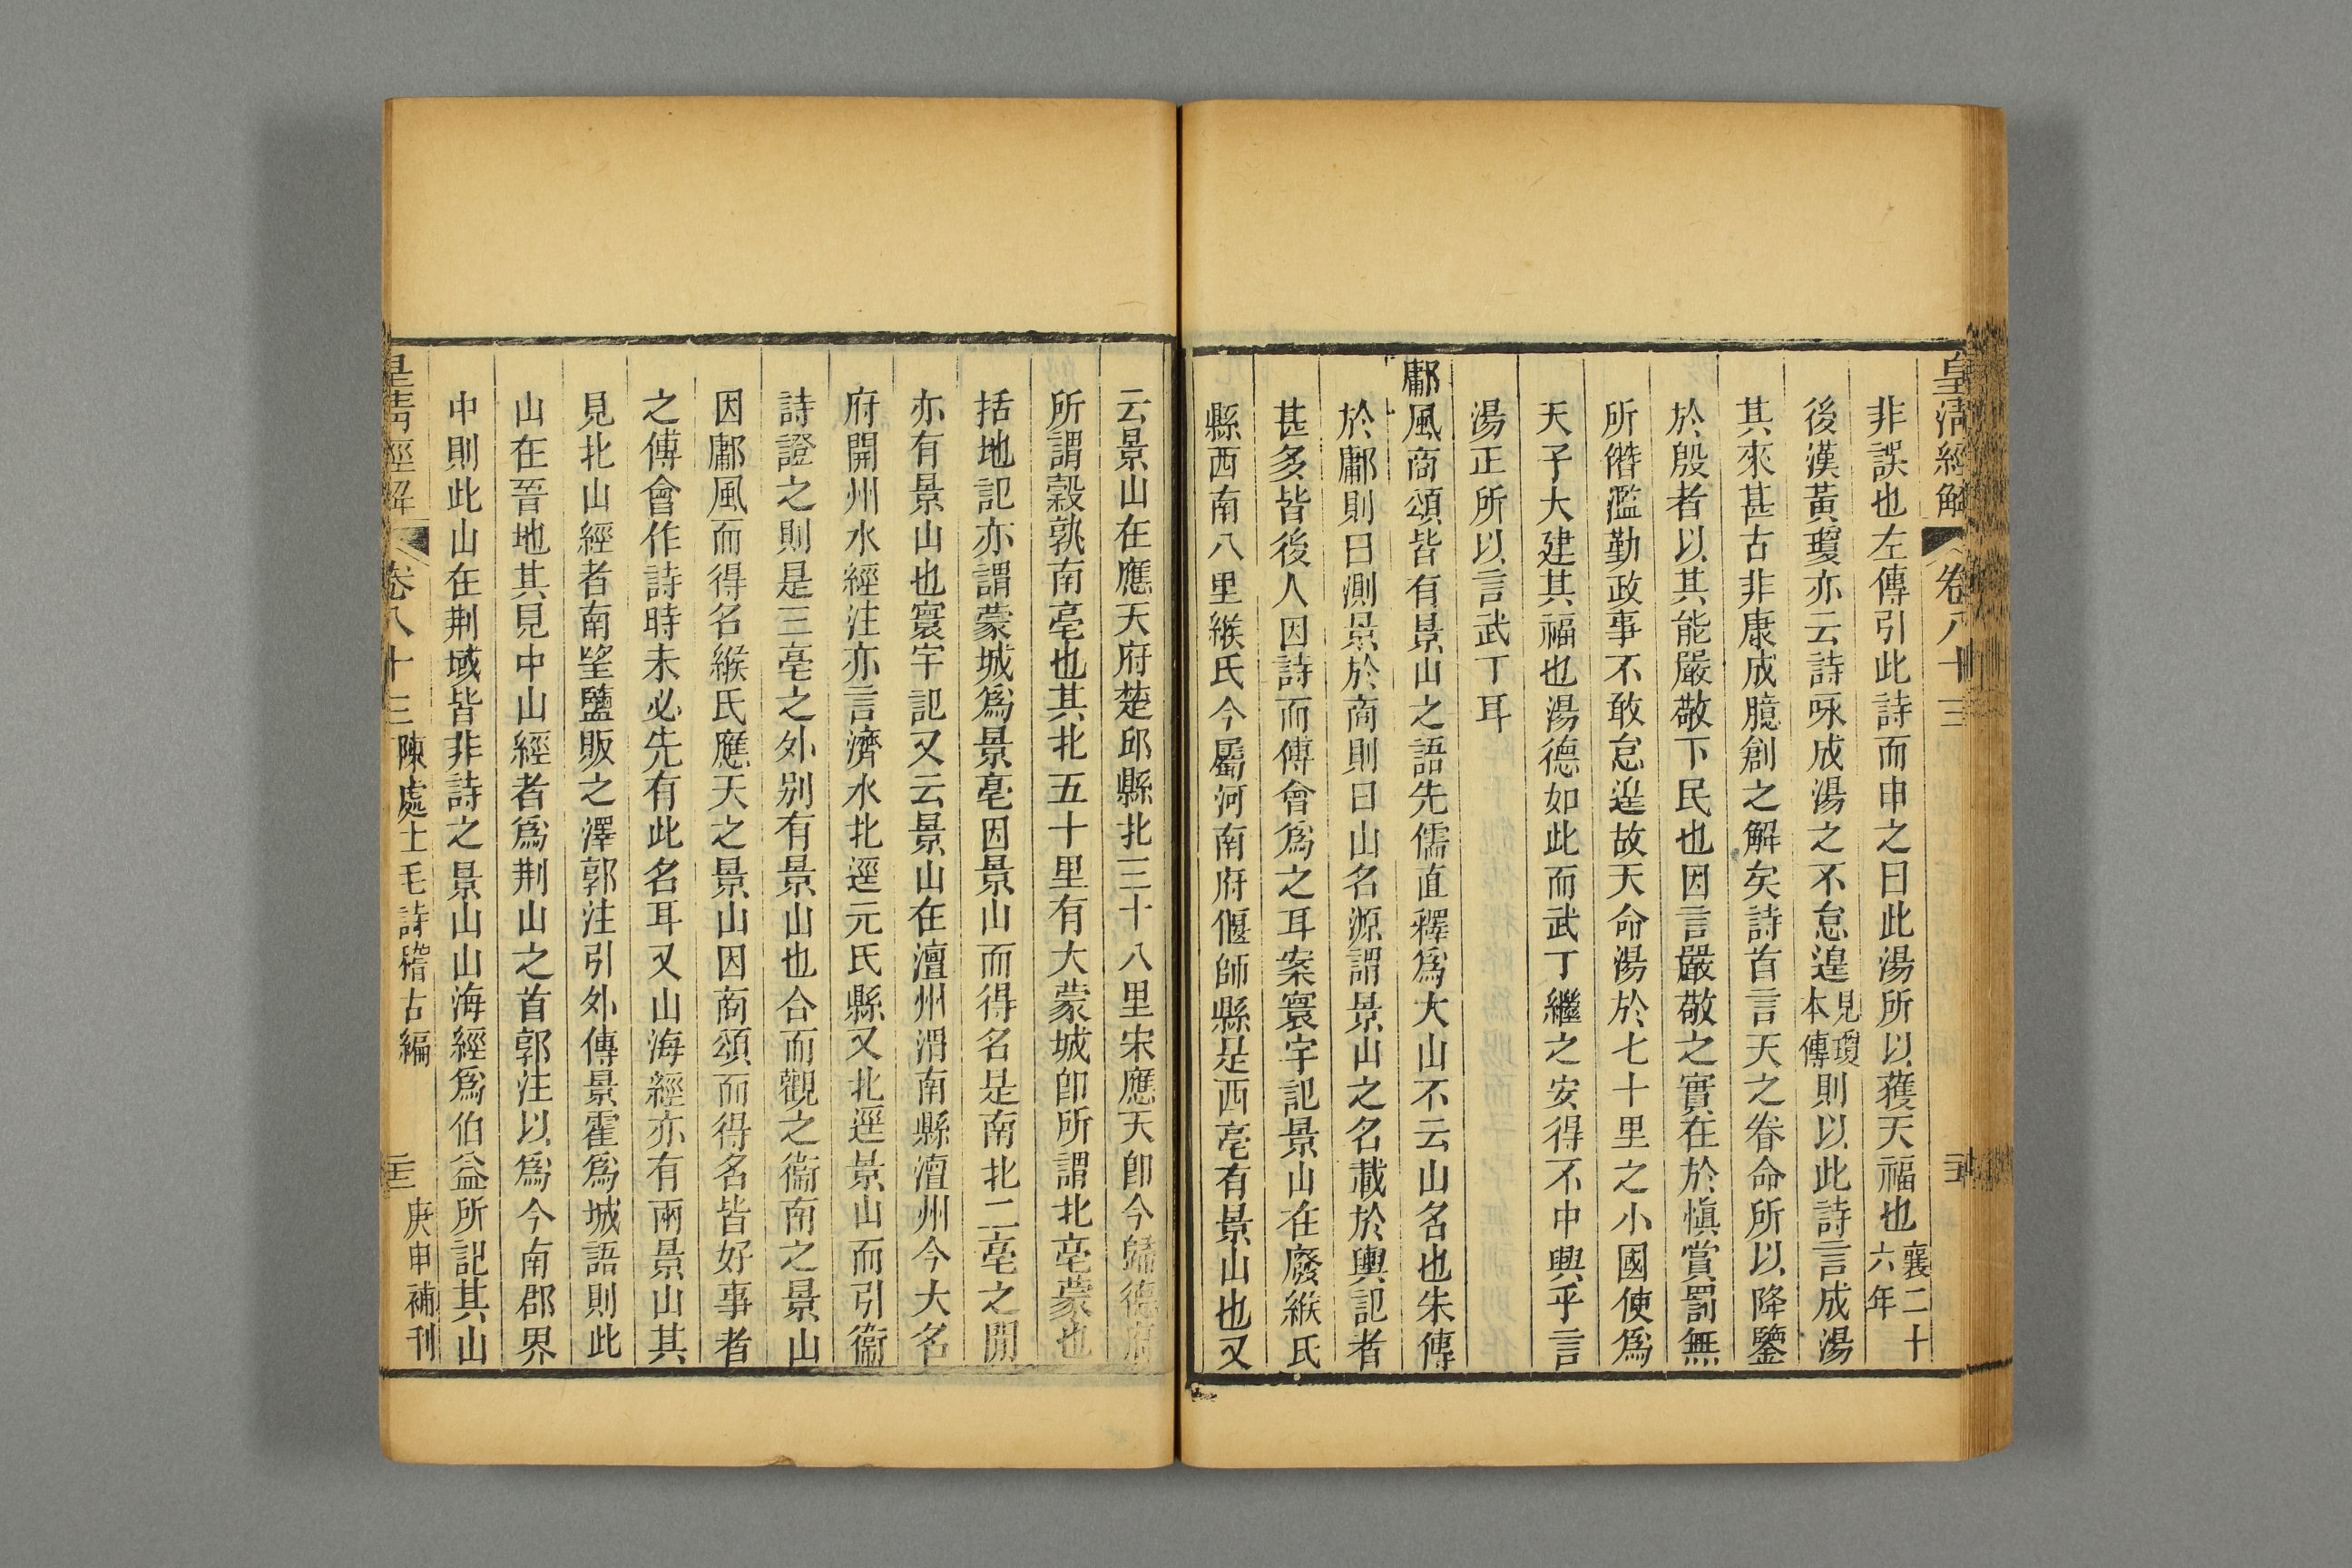 皇清經解 卷八十三
非誤也左傳引此詩而申之曰此湯所以獲天福也襄二十六年
後漢黃瓊亦云詩咏成湯之不怠遑見瓊本傳則以此詩言成湯
其來甚古非康成臆創之解矣詩首言天之眷命所以降鑒
於殷者以其能嚴敬下民也因言嚴敬之實在於慎賞罰無
所僭濫勤政事不敢怠遑故天命湯於七十里之小國使爲
天子大建其福也湯德如此而武丁繼之安得不中興乎言
湯正所以言武丁耳
鄘風商頌皆有景山之語先儒直釋爲大山不云山名也朱傳
於鄘則曰測景於商則曰山名源謂景山之名載於輿記者
甚多皆後人因詩而傅會爲之耳案寰宇記景山在廢緱氏
縣西南八里緱氏今屬河南府偃師縣是西亳有景山也又
云景山在應天府楚邱縣北三十八里宋應天卽今歸德府
所謂穀孰南亳也其北五十里有大蒙城卽所謂北亳蒙也
括地記亦謂蒙城爲景亳因景山而得名是南北二亳之閒
亦有景山也寰宇記又云景山在澶州渭南縣澶州今大名
府開州水經注亦言濟水北逕元氏縣又北逕景山而引衞
詩證之則是三亳之外别有景山也合而觀之衞南之景山
因鄘風而得名緱氏應天之景山因商頌而得名皆好事者
之傅會作詩時未必先有此名耳又山海經亦有兩景山其
見北山經者南望鹽販之澤郭注引外傳景霍爲城語則此
山在晉地其見中山經者爲荆山之首郭注以爲今南郡界
中則此山在荆域皆非詩之景山山海經爲伯益所記其山
皇清經解 卷八十三 陳處士毛詩稽古編 庚申補刊